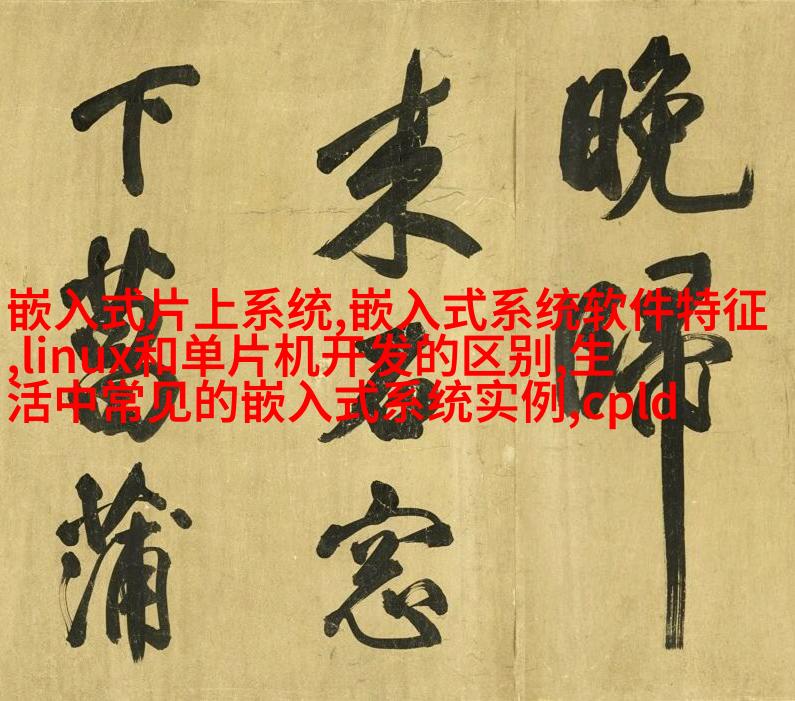 嵌入式片上系统,嵌入式系统软件特征
,linux和单片机开发的区别,生
活中常见的嵌入式系统实例,cpld
晚歸
来窓
下菖蒲